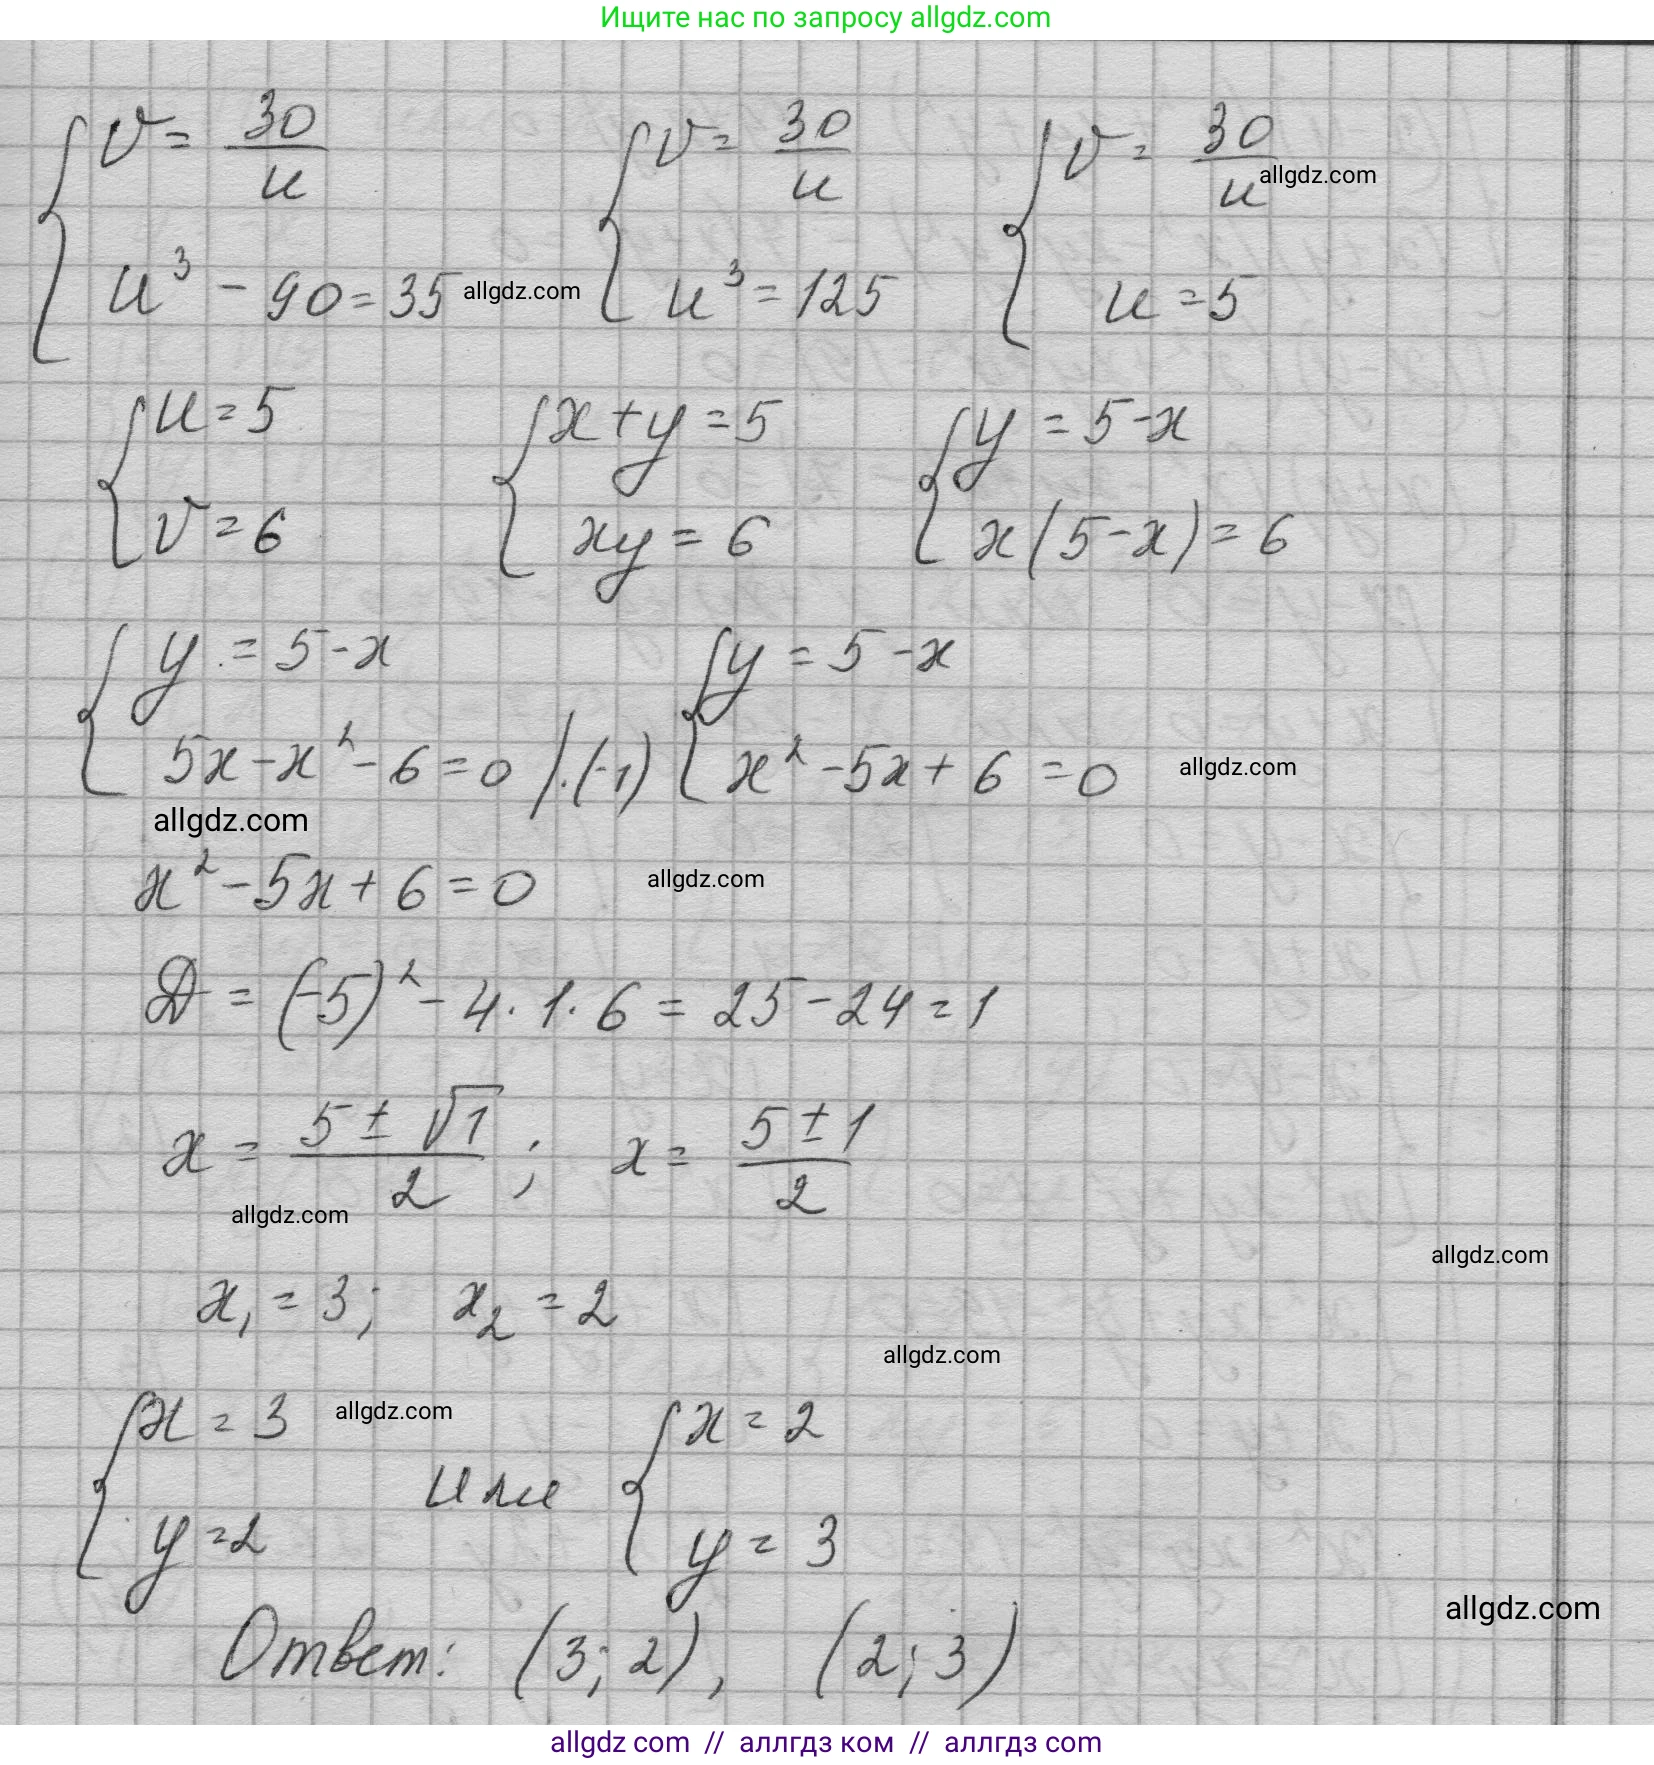 Ищите нас по запросу allgdz.com
{ v = 30/u { v = 30/u { v = 30/u allgdz.com
u³ - 90 = 35 allgdz.com u³ = 125 u = 5
{ u = 5 { x + y = 5 { y = 5 - x
v = 6 xy = 6 x(5 - x) = 6
{ y = 5 - x { y = 5 - x
5x - x² - 6 = 0 /·(-1) x² - 5x + 6 = 0 allgdz.com
allgdz.com
x² - 5x + 6 = 0 allgdz.com
D = (-5)² - 4 · 1 · 6 = 25 - 24 = 1
x = (5 ± √1)/2 ; x = (5 ± 1)/2
allgdz.com
allgdz.com
x₁ = 3; x₂ = 2
allgdz.com
{ x = 3 allgdz.com { x = 2
или
y = 2 y = 3
allgdz.com
Ответ: (3; 2), (2; 3)
allgdz com // аллгдз ком // аллгдз com